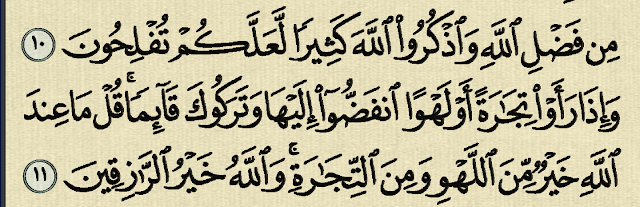 مِن فَضْلِ ٱللَّهِ وَٱذْكُرُوا۟ ٱللَّهَ كَثِيرًا لَّعَلَّكُمْ تُفْلِحُونَ ١٠
وَإِذَا رَأَوْا۟ تِجَـٰرَةً أَوْ لَهْوًا ٱنفَضُّوٓا۟ إِلَيْهَا وَتَرَكُوكَ قَآئِمًا ۚ قُلْ مَا عِندَ
ٱللَّهِ خَيْرٌ مِّنَ ٱللَّهْوِ وَمِنَ ٱلتِّجَـٰرَةِ ۚ وَٱللَّهُ خَيْرُ ٱلرَّٰزِقِينَ ١١